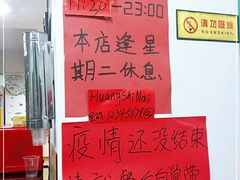 11:20-23:00
本店逢星
期二休息
请勿吸烟
NO SMOKING
HuangShiNai
疫情还没结束